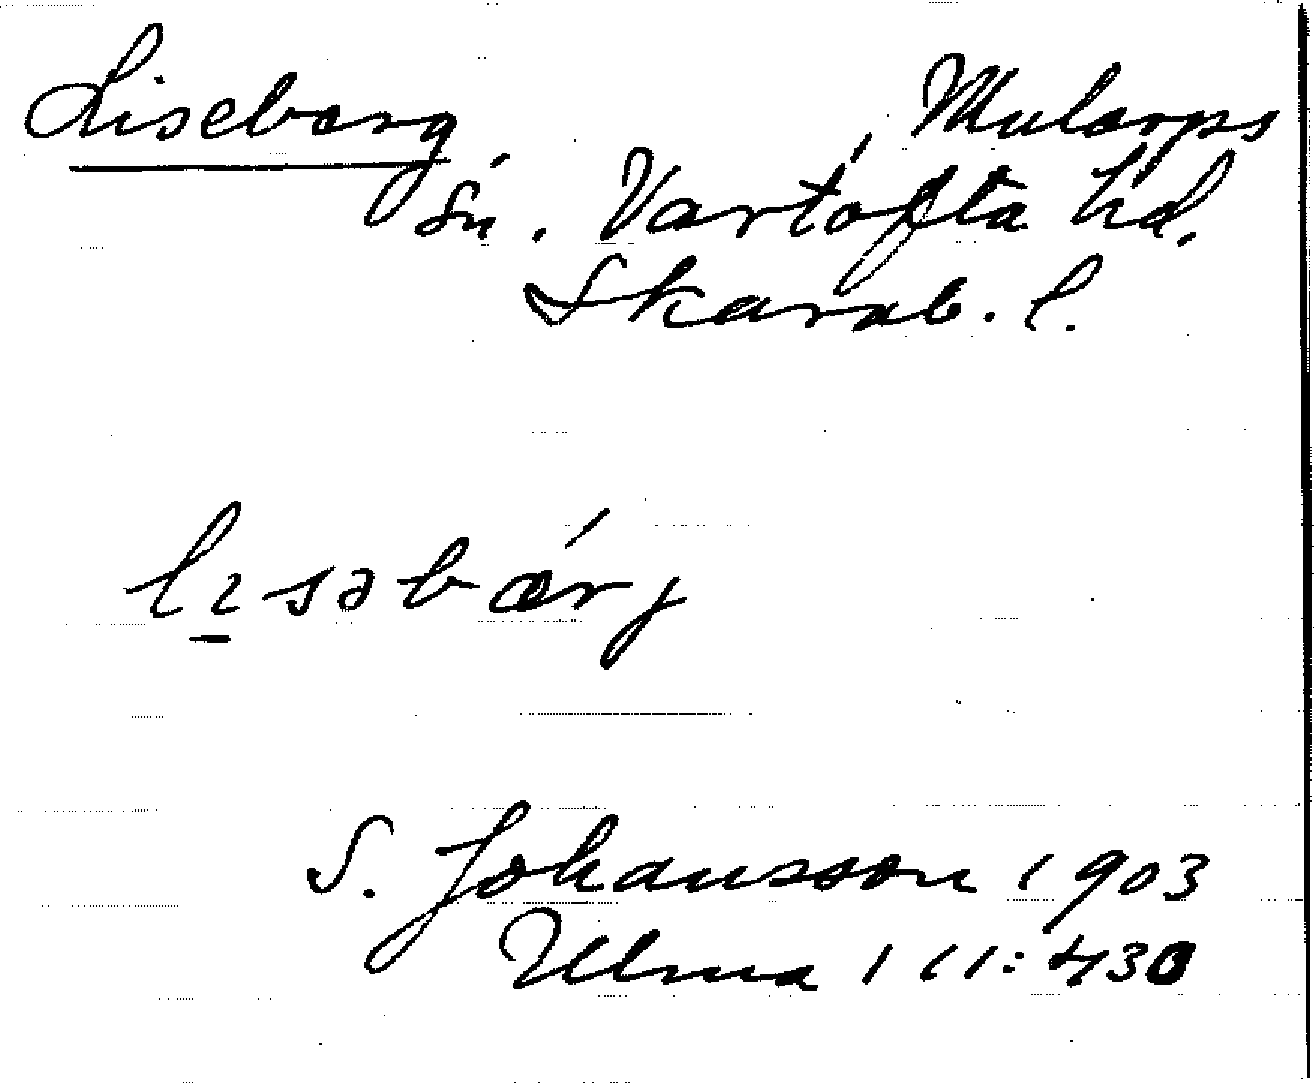 Liseberg Mularps
sn. Vartofta hd.
Skarab. l.
lɩsəbærj
S. Johansson 1903
Ulma 111:430